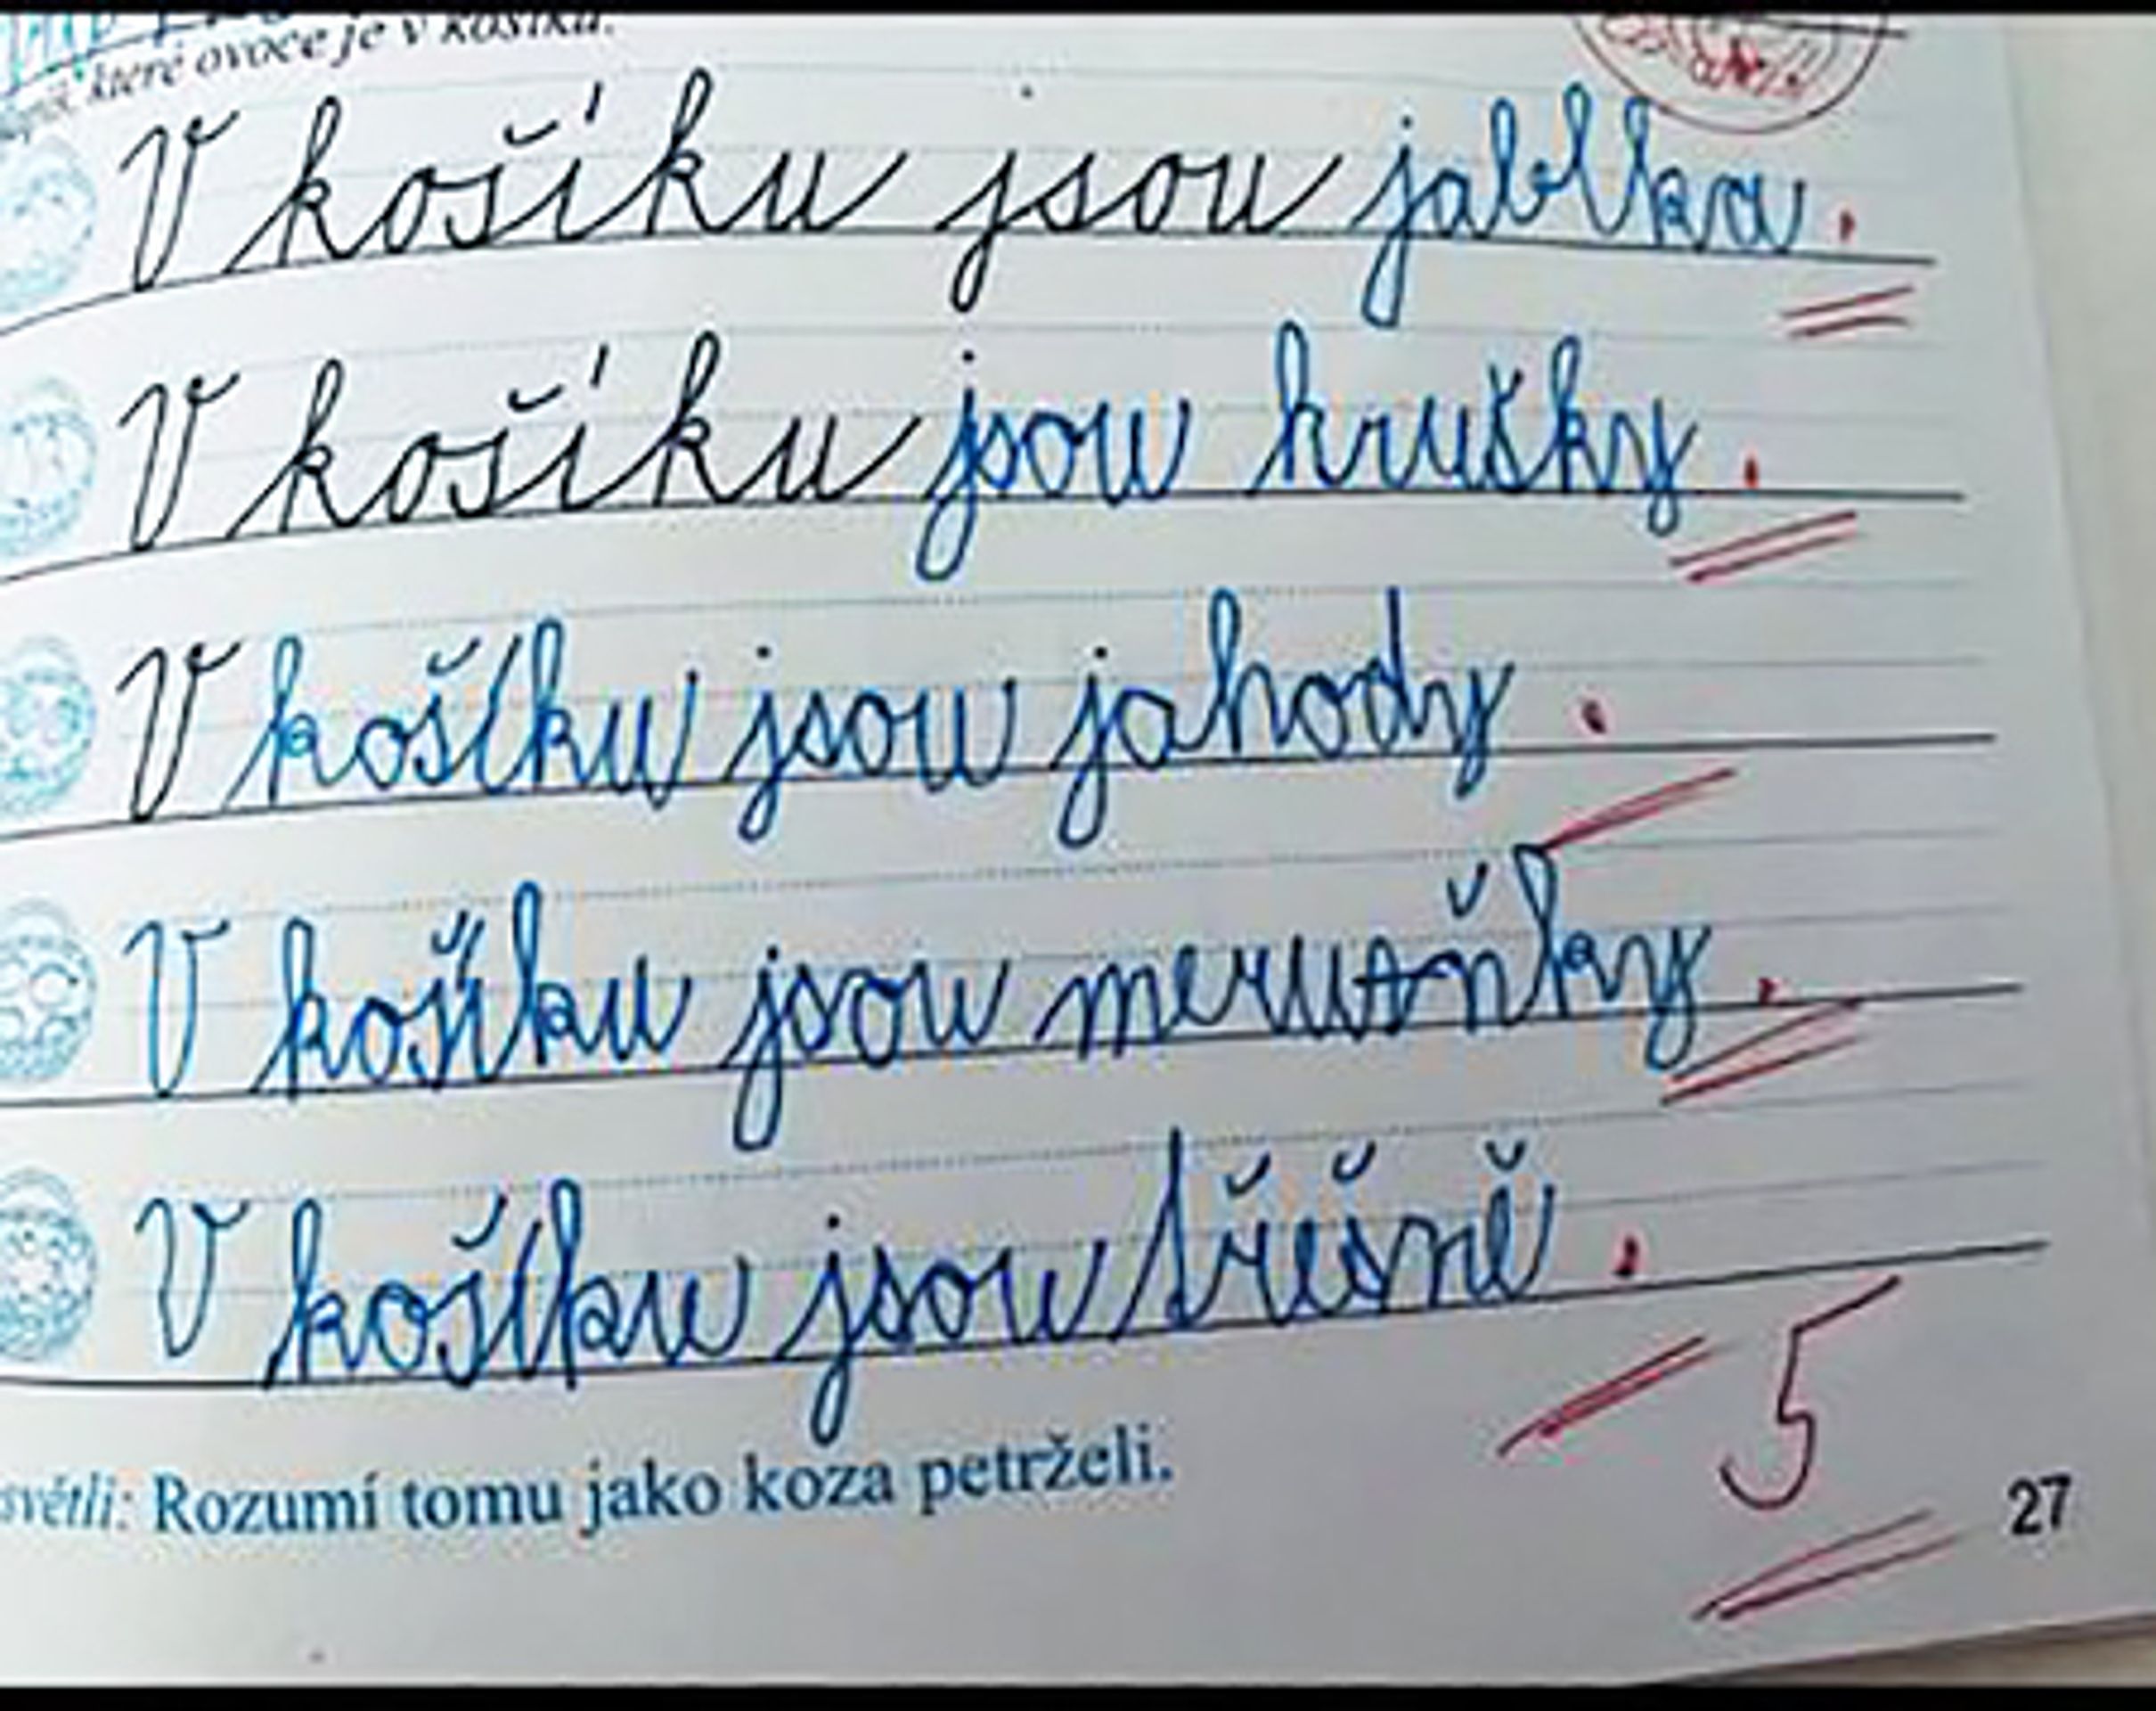 které ovoce je v košíku.
V košíku jsou jablka.
V košíku jsou hrušky.
V košíku jsou jahody.
V košíku jsou meruňky.
V košíku jsou třešně.
5
Rozumí tomu jako koza petrželi.
27